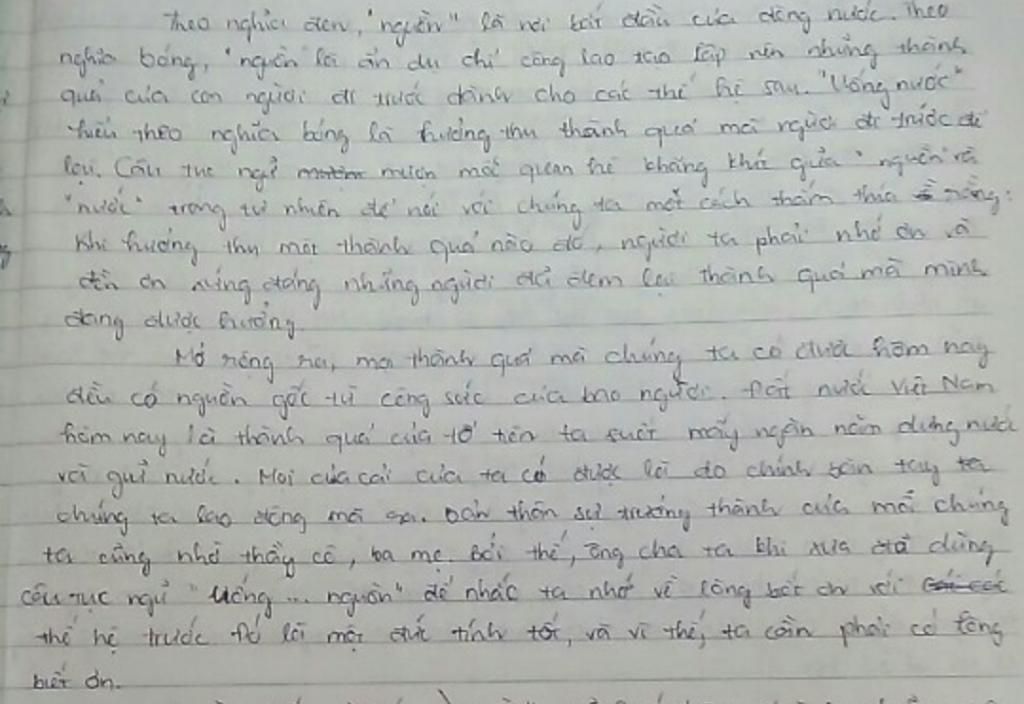 Theo nghĩa đen, "nguồn" là nơi bắt đầu của dòng nước. Theo
nghĩa bóng, "nguồn là ẩn dụ chỉ công lao tạo lập nên những thành
quả của con người đi trước dành cho các thế hệ sau. "Uống nước"
hiểu theo nghĩa bóng là hưởng thụ thành quả mà người đi trước để
lại. Câu tục ngữ mượn mối quan hệ khăng khít giữa "nguồn và
"nước" trong tự nhiên để nói với chúng ta một cách thấm thía rằng:
Khi hưởng thụ một thành quả nào đó, người ta phải nhớ ơn và
đền ơn xứng đáng những người đã đem lại thành quả mà mình
đang được hưởng.
Mở rộng ra, mọi thành quả mà chúng ta có được hôm nay
đều có nguồn gốc từ công sức của bao người. Đất nước Việt Nam
hôm nay là thành quả của tổ tiên ta suốt mấy ngàn năm dựng nước
và giữ nước. Mọi của cải của ta có được là do chính bàn tay
chúng ta lao động mà ra. Bản thân sự trưởng thành của mỗi chúng
ta cũng nhờ thầy cô, ba mẹ. Bởi thế, ông cha ta khi xưa đã dùng
câu tục ngữ "Uống ... nguồn" để nhắc ta nhớ về lòng biết ơn với
thế hệ trước. Đó là một đức tính tốt, và vì thế, ta cần phải có lòng
biết ơn.